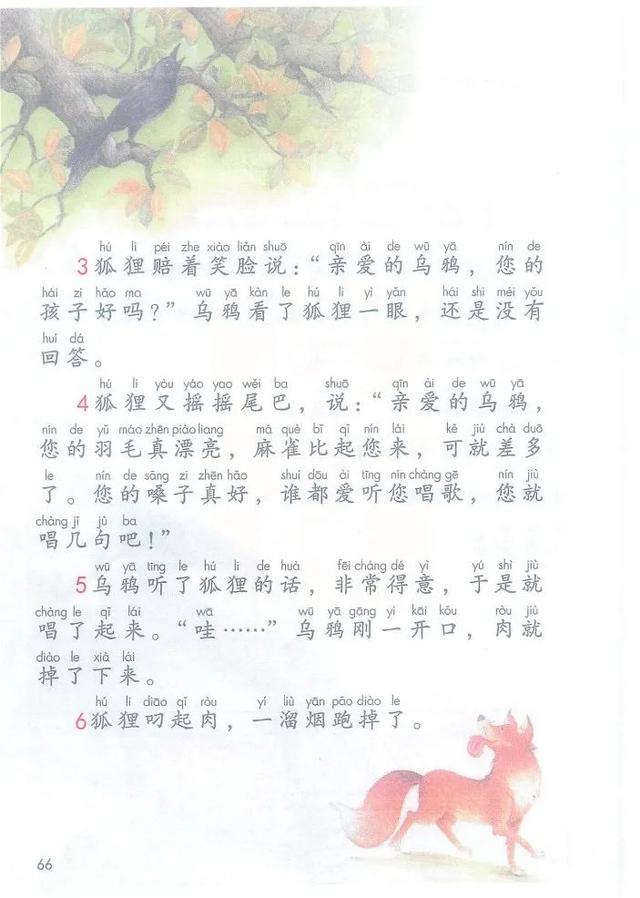 hú li péi zhe xiào liǎn shuō qīn ài de wū yā nín de
3 狐狸赔着笑脸说：“亲爱的乌鸦，您的
hái zi hǎo ma wū yā kàn le hú li yì yǎn hái shi méi yǒu
孩子好吗？”乌鸦看了狐狸一眼，还是没有
huí dá
回答。
hú li yòu yáo yao wěi ba shuō qīn ài de wū yā
4 狐狸又摇摇尾巴，说：“亲爱的乌鸦，
nín de yǔ máo zhēn piào liang má què bǐ qǐ nín lái kě jiù chà duō
您的羽毛真漂亮，麻雀比起您来，可就差多
le nín de sǎng zi zhēn hǎo shuí dōu ài tīng nín chàng gē nín jiù
了。您的嗓子真好，谁都爱听您唱歌，您就
chàng jǐ jù ba
唱几句吧！”
wū yā tīng le hú li de huà fēi cháng dé yì yú shì jiù
5 乌鸦听了狐狸的话，非常得意，于是就
chàng le qǐ lái wā wū yā gāng yì kāi kǒu ròu jiù
唱了起来。“哇……”乌鸦刚一开口，肉就
diào le xià lái
掉了下来。
hú li diāo qǐ ròu yí liù yān pǎo diào le
6 狐狸叼起肉，一溜烟跑掉了。
66